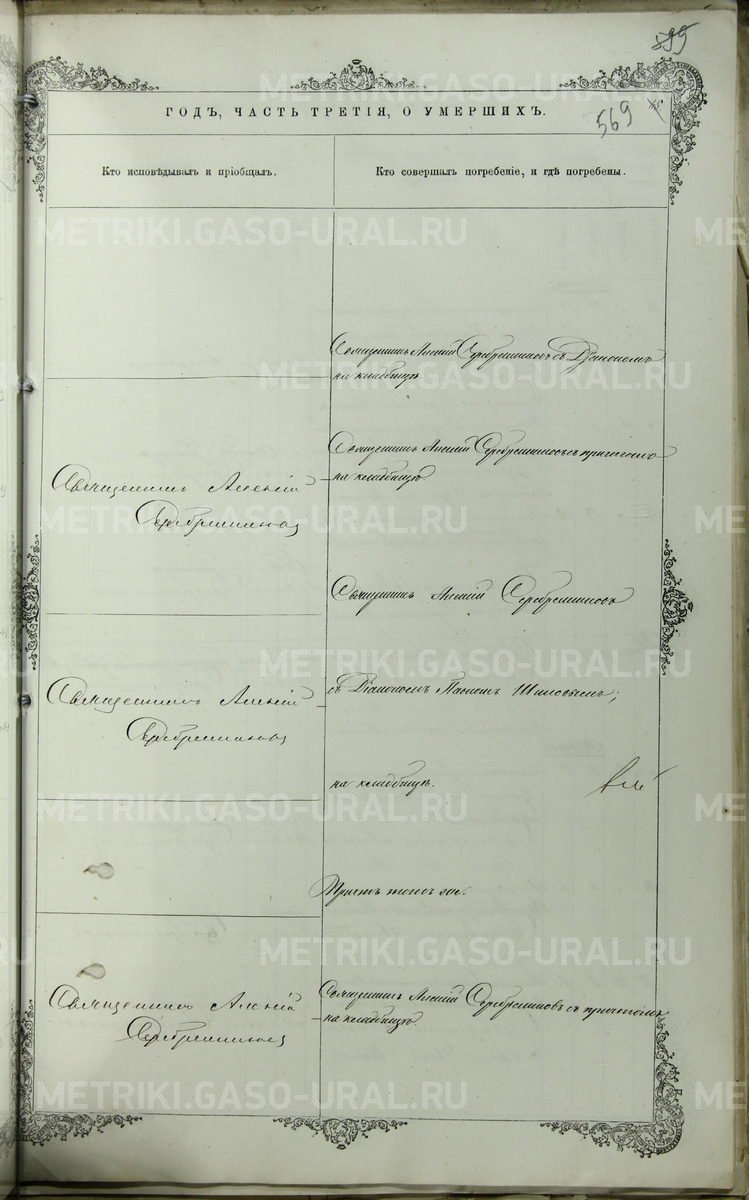 599
569
ГОДЪ, ЧАСТЬ ТРЕТІЯ, О УМЕРШИХЪ.
Кто исповѣдывалъ и пріобщалъ.
Кто совершалъ погребеніе, и гдѣ погребены.
Священникъ Алексій Серебренниковъ съ Діакономъ
на кладбищѣ
Священникъ Алексій
Серебренниковъ
Священникъ Алексій Серебренниковъ съ причтомъ
на кладбищѣ
Священникъ Алексій Серебренниковъ
Священникъ Алексій
Серебренниковъ
съ Діакономъ Шиловымъ;
на кладбищѣ.
Священникъ Алексій
Серебренниковъ
Священникъ Алексій Серебренниковъ съ причтомъ
на кладбищѣ
METRIKI.GASO-URAL.RU